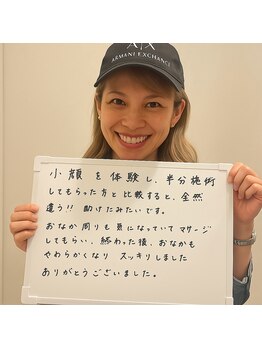 A|X
ARMANI EXCHANGE
小顔を体験し、半分施術
してもらった方と比較すると、全然
違う!! 助けたみたいです。
おなか周りも気になっていてマッサージ
してもらい、終わった後、おなかも
やわらかくなり スッキリしました
ありがとうございました。